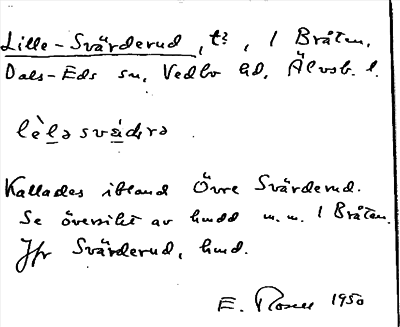 Lille-Svärderud, t?, / Bråten,
Dals-Eds sn, Vedbo hd, Älvsb. l.
lèlə svädrə
Kallades ibland Övre Svärderud.
Se översikt av hmdd m.m. / Bråten.
Jfr Svärderud, hmd.
E. 1950